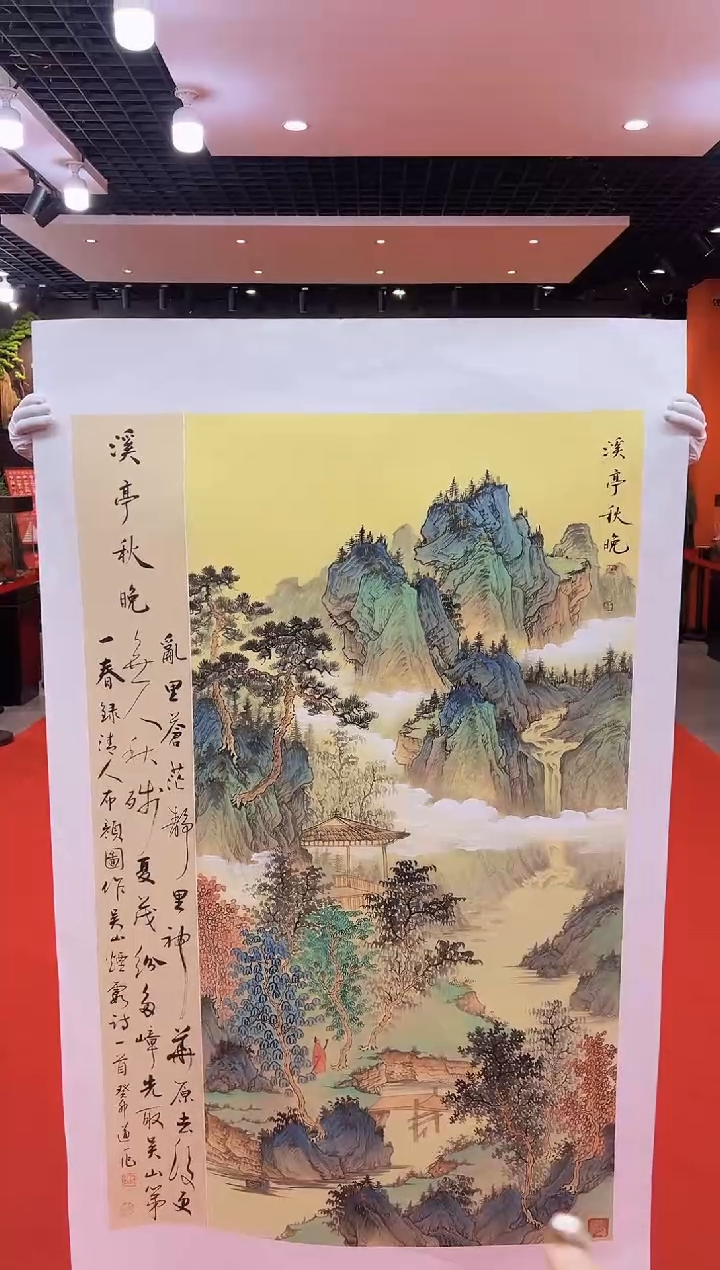 溪亭秋晚
溪亭秋晚
亂里蒼茫靜里神華原去後更
無人秋殘夏茂紛多嶂先取吴山第
一春録清人布顏圖作吴山煙靄詩一首癸卯